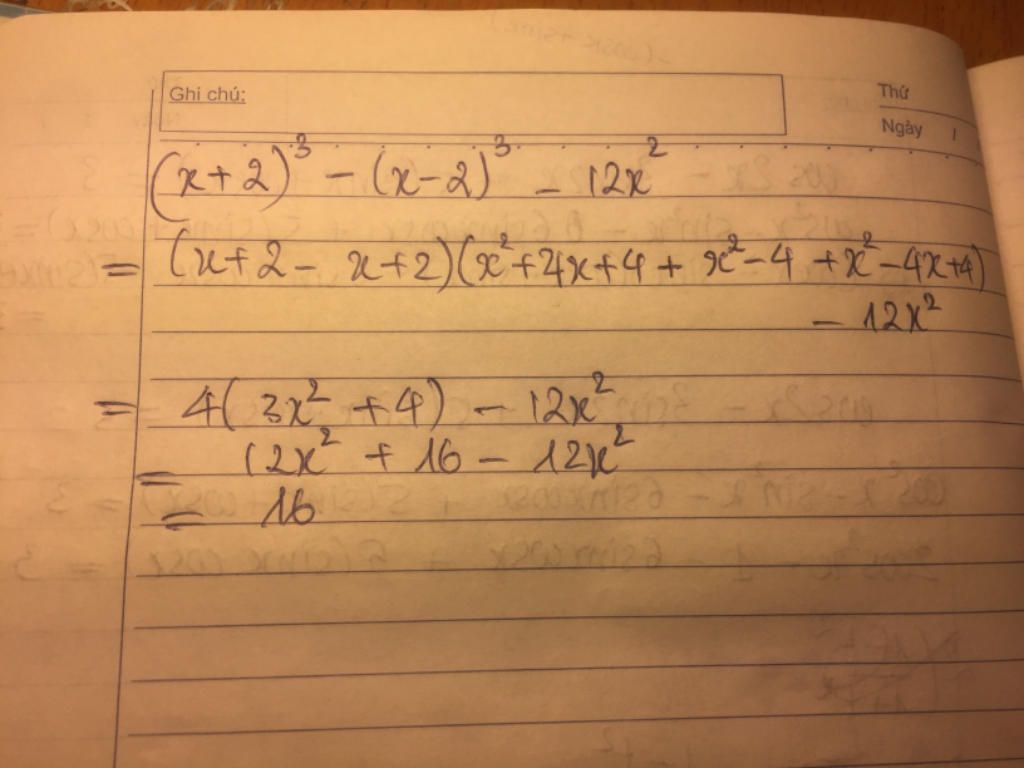 Ghi chú:
Thứ
Ngày
(x+2)³ - (x-2)³ - 12x²
= (x+2 - x+2)(x²+4x+4 + x²-4 + x²-4x+4)
- 12x²
= 4(3x² + 4) - 12x²
= 12x² + 16 - 12x²
= 16